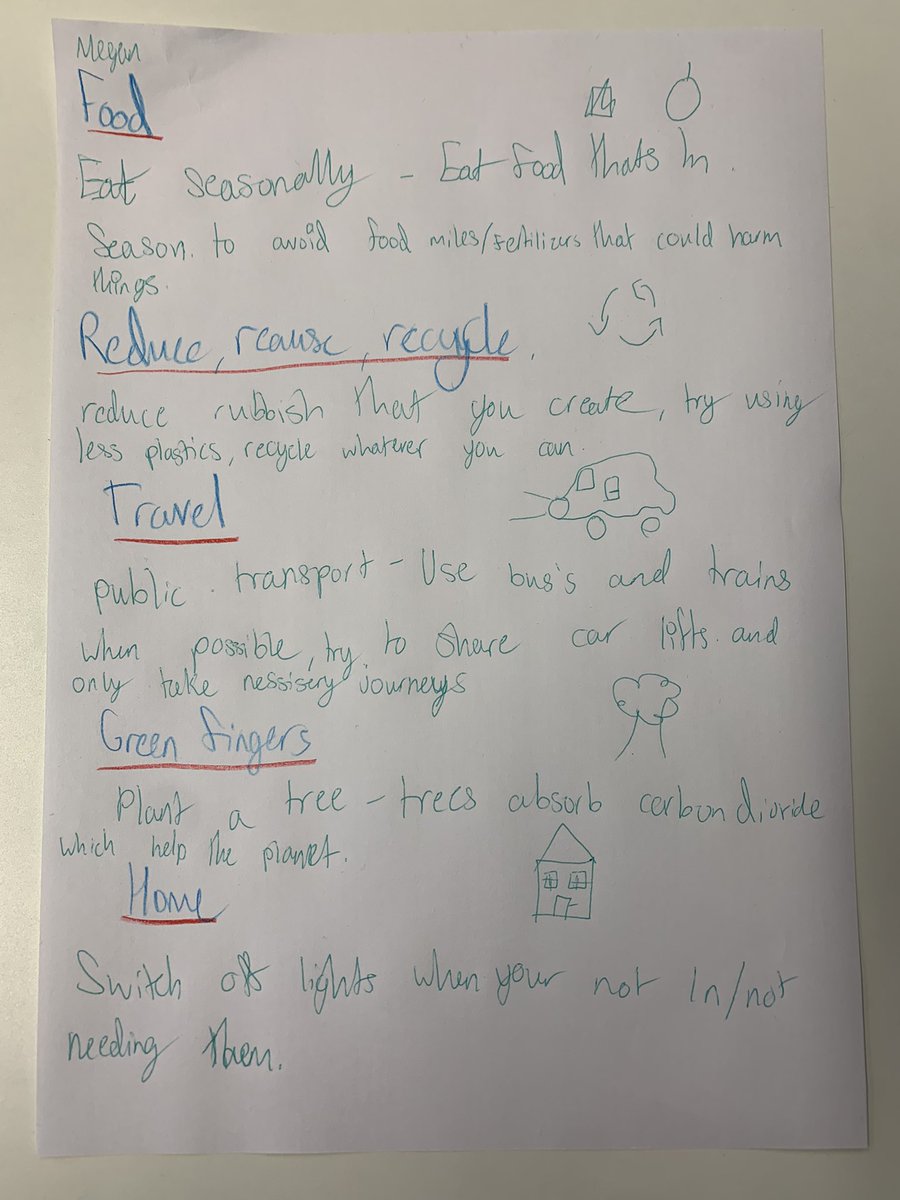 Megan
Food
Eat seasonally - Eat food thats In.
Season. to avoid food miles/fertilizers that could harm
things.
Reduce, reause, recycle.
reduce rubbish that you create, try using
less plastics, recycle whatever you can.
Travel
public transport - Use bus's and trains
when possible, try to share car lifts and
only take nessisery journeys
Green fingers
Plant a tree - trees absorb carbon dioxide
which help the planet.
Home
Switch off lights when your not In/not
needing them.